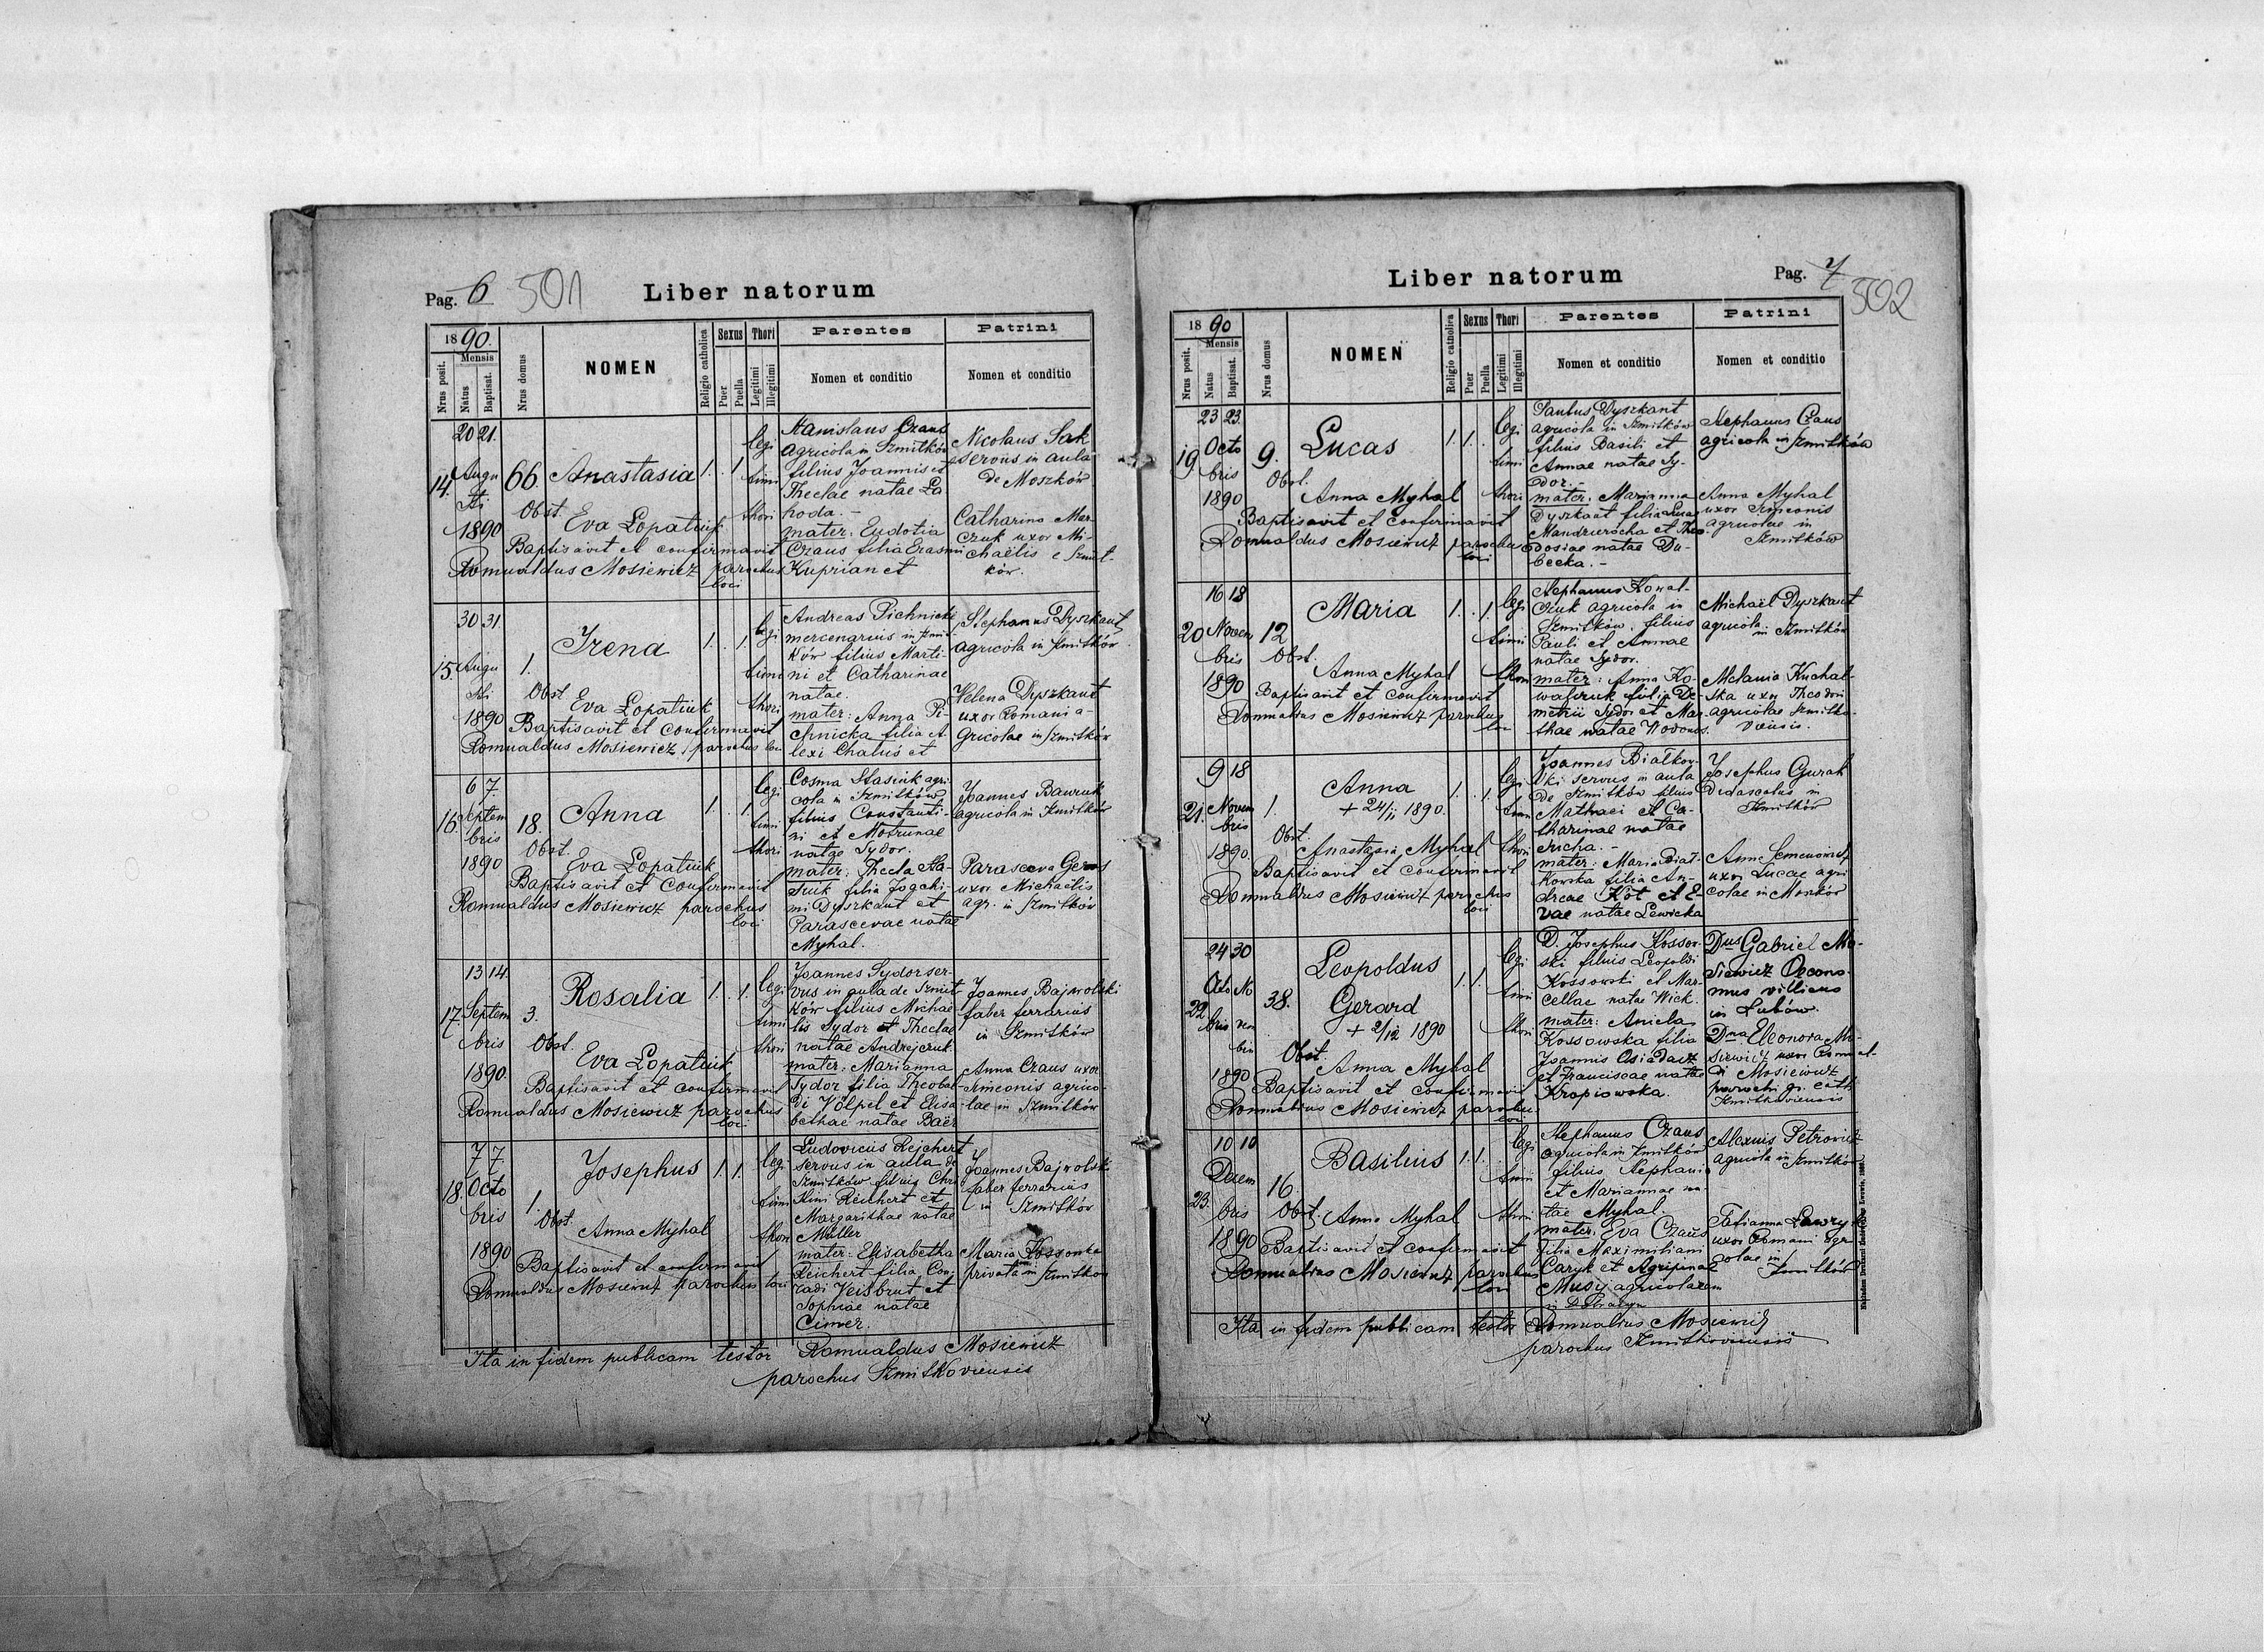 Pag. 6 501
Liber natorum
1890.
Nrus posit.
Mensis
Natus
Baptisat.
Nrus domus
NOMEN
Religio catholica
Sexus
Puer
Puella
Thori
Legitimi
Illegitimi
Parentes
Nomen et conditio
Patrini
Nomen et conditio
14.
20 21.
Augu
sti
1890
66.
Anastasia
1. . 1.
legi
timi
thori
Obst.
Eva Lopatiuk
Baptisavit et confirmavit
Romualdus Mosiewicz parochus
loci
Stanislaus Czaus
agricola in Szmitków
filius Joannis et
Theclae natae La
hoda. -
mater: Eudotia
Czaus filia Erasmi
Kuprian et
Nicolaus Sak
servus in aula
de Moszków
Catharina Mar
czuk uxor Mi-
chaëlis e Szmit-
ków.
15.
30 31.
Augu
sti
1890
1.
Irena
1. . 1.
legi
timi
thori
Obst.
Eva Lopatiuk
Baptisavit et confirmavit
Romualdus Mosiewicz, parochus loci
Andreas Pichnicki
mercenarius in Szmit-
ków filius Marti-
ni et Catharinae
natae.
mater: Anna Pi-
chnicka filia A-
lexi Chatus et
Stephanus Dyszkant
agricola in Szmitków.
Helena Dyszkant
uxor Romani a-
gricolae in Szmitków
16.
6 7
Septem
bris
1890
18.
Anna
1. . 1.
legi
timi
thori
Obst.
Eva Lopatiuk
Baptisavit et confirmavit
Romualdus Mosiewicz parochus
loci
Cosma Stasiuk agri-
cola in Szmitków
filius Constanti-
ni et Motrunae
natae Sydor.
mater: Thecla Sta-
siuk filia Joachi-
mi Dyszkant et
Parascevae natae
Myhal.
Joannes Bawruk
agricola in Szmitków
Parasceva Gerus
uxor Michaëlis
agr. in Szmitków
17.
13 14.
Septem
bris
1890.
3.
Rosalia
1. . 1.
legi
timi
thori
Obst.
Eva Lopatiuk
Baptisavit et confirmavit
Romualdus Mosiewicz parochus
loci
Joannes Sydor ser-
vus in aula de Szmit-
ków filius Michaë
lis Sydor et Theclae
natae Andrejczuk.
mater: Marianna
Sydor filia Theobal-
di Völpel et Elisa
bethae natae Baër
Joannes Bajwolski
faber ferrarius
in Szmitków
Anna Czaus uxor
Simeonis agrico-
lae in Szmitków
18.
7 7
Octo
bris
1890
1.
Josephus
1. 1.
legi
timi
thori
Obst.
Anna Myhal
Baptisavit et confirmavit
Romualdus Mosiewicz parochus loci
Ludovicus Rejchert
servus in aula de
Szmitków filius
Reichert et
Margarithae natae
Müller
mater: Elisabetha
Reichert filia Con-
radi Veisbrut et
Sophiae natae
Cimer.
Joannes Bajwolski
faber ferrarius
in Szmitków
Maria Kossowska
privata in Szmitków
Ita in fidem publicam testor Romualdus Mosiewicz
parochus Szmitkoviensis
Liber natorum
Pag. 7 502
1890
Nrus posit.
Mensis
Natus
Baptisat.
Nrus domus
NOMEN
Religio catholica
Sexus
Puer
Puella
Thori
Legitimi
Illegitimi
Parentes
Nomen et conditio
Patrini
Nomen et conditio
19
23 23.
Octo
bris
1890
9.
Lucas
1. 1. .
legi
timi
thori
Obst.
Anna Myhal
Baptisavit et confirmavit
Romualdus Mosiewicz parochus
loci
Paulus Dyszkant
agricola in Szmitków
filius Basili et
Annae natae Sy-
dor. -
mater: Marianna
Dyszkant filia Lucae
Mandzierocha et Theo
dosiae natae Du-
becka. -
Stephanus Czaus
agricola in Szmitków
Anna Myhal
uxor Simeonis
agricolae in
Szmitków
20
16 18
Novem
bris
1890
12
Maria
1. . 1.
legi
timi
thori
Obst.
Anna Myhal
Baptisavit et confirmavit
Romualdus Mosiewicz parochus
loci
Stephanus Kowal-
czuk agricola in
Szmitków, filius
Pauli et Annae
natae Sydor.
mater: Anna Ko-
walczuk filia De-
metrii Sydor et Mar-
thae natae Wodonos.
Michaël Dyszkant
agricola in Szmitków
Melania Kuchal-
ska uxor Theodori
agricolae Szmitko-
viensis.
21.
9 18
Novem
bris
1890.
1.
Anna
+ 24/11 1890.
1. . 1.
legi
timi
thori
Obst.
Anastasia Myhal
Baptisavit et confirmavit
Romualdus Mosiewicz parochus
loci
Joannes Białkow-
ski servus in aula
de Szmitków filius
Mathaei et Ca-
tharinae natae
Sucha. -
mater: Maria Biał-
kowska filia An-
dreae Kot et E-
vae natae Lewicka
Josephus Gurak
Didascalus in
Szmitków
Anna Semenowicz
uxor Lucae agri
colae in Moszków
22.
24 30
Octo No
bris vem
bris
1890
38.
Leopoldus
Gerard
+ 2/12 1890
1. 1.
legi
timi
thori
Obst.
Anna Myhal
Baptisavit et confirmavit
Romualdus Mosiewicz parochus
loci
D. Josephus Kossow-
ski filius Leopoldi
Kossowski et Mar-
cellae natae Wick.
mater: Aniela
Kossowska filia
Joannis Osiadacz
et Franciscae natae
Kropiowska.
Dus Gabriel Mo-
siewicz Oecono-
mus villicus
in Lubów.
Dna Eleonora Mo-
siewicz uxor Romual-
di Mosiewicz
parochi gr. cath.
Szmitkoviensis
23.
10 10
Decem
bris
1890
16.
Basilius
1. 1.
legi
timi
thori
Obst.
Anna Myhal
Baptisavit et confirmavit
Romualdus Mosiewicz parochus
loci
Stephanus Czaus
agricola in Szmitków
filius Stephani
et Mariannae na-
tae Myhal.
mater: Eva Czaus
filia Maximiliani
Caryk et Agripinae
Musij agricolarum
in
Alexius Petrowicz
agricola in Szmitków
Tatianna Lawryk
uxor Romani agri
colae in
Szmitków
Ita in fidem publicam testor Romualdus Mosiewicz
parochus Szmitkoviensis